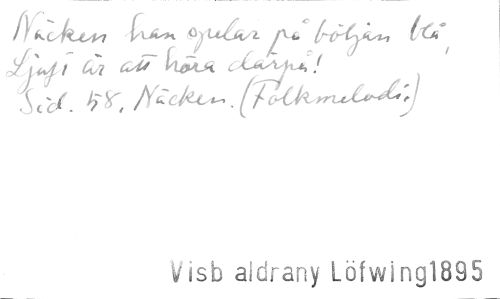 Näcken han spelar på böljan blå,
Ljuft är att höra därpå!
Sid. 58. Näcken. (Folkmelodi.)
Visb aldrany Löfwing1895